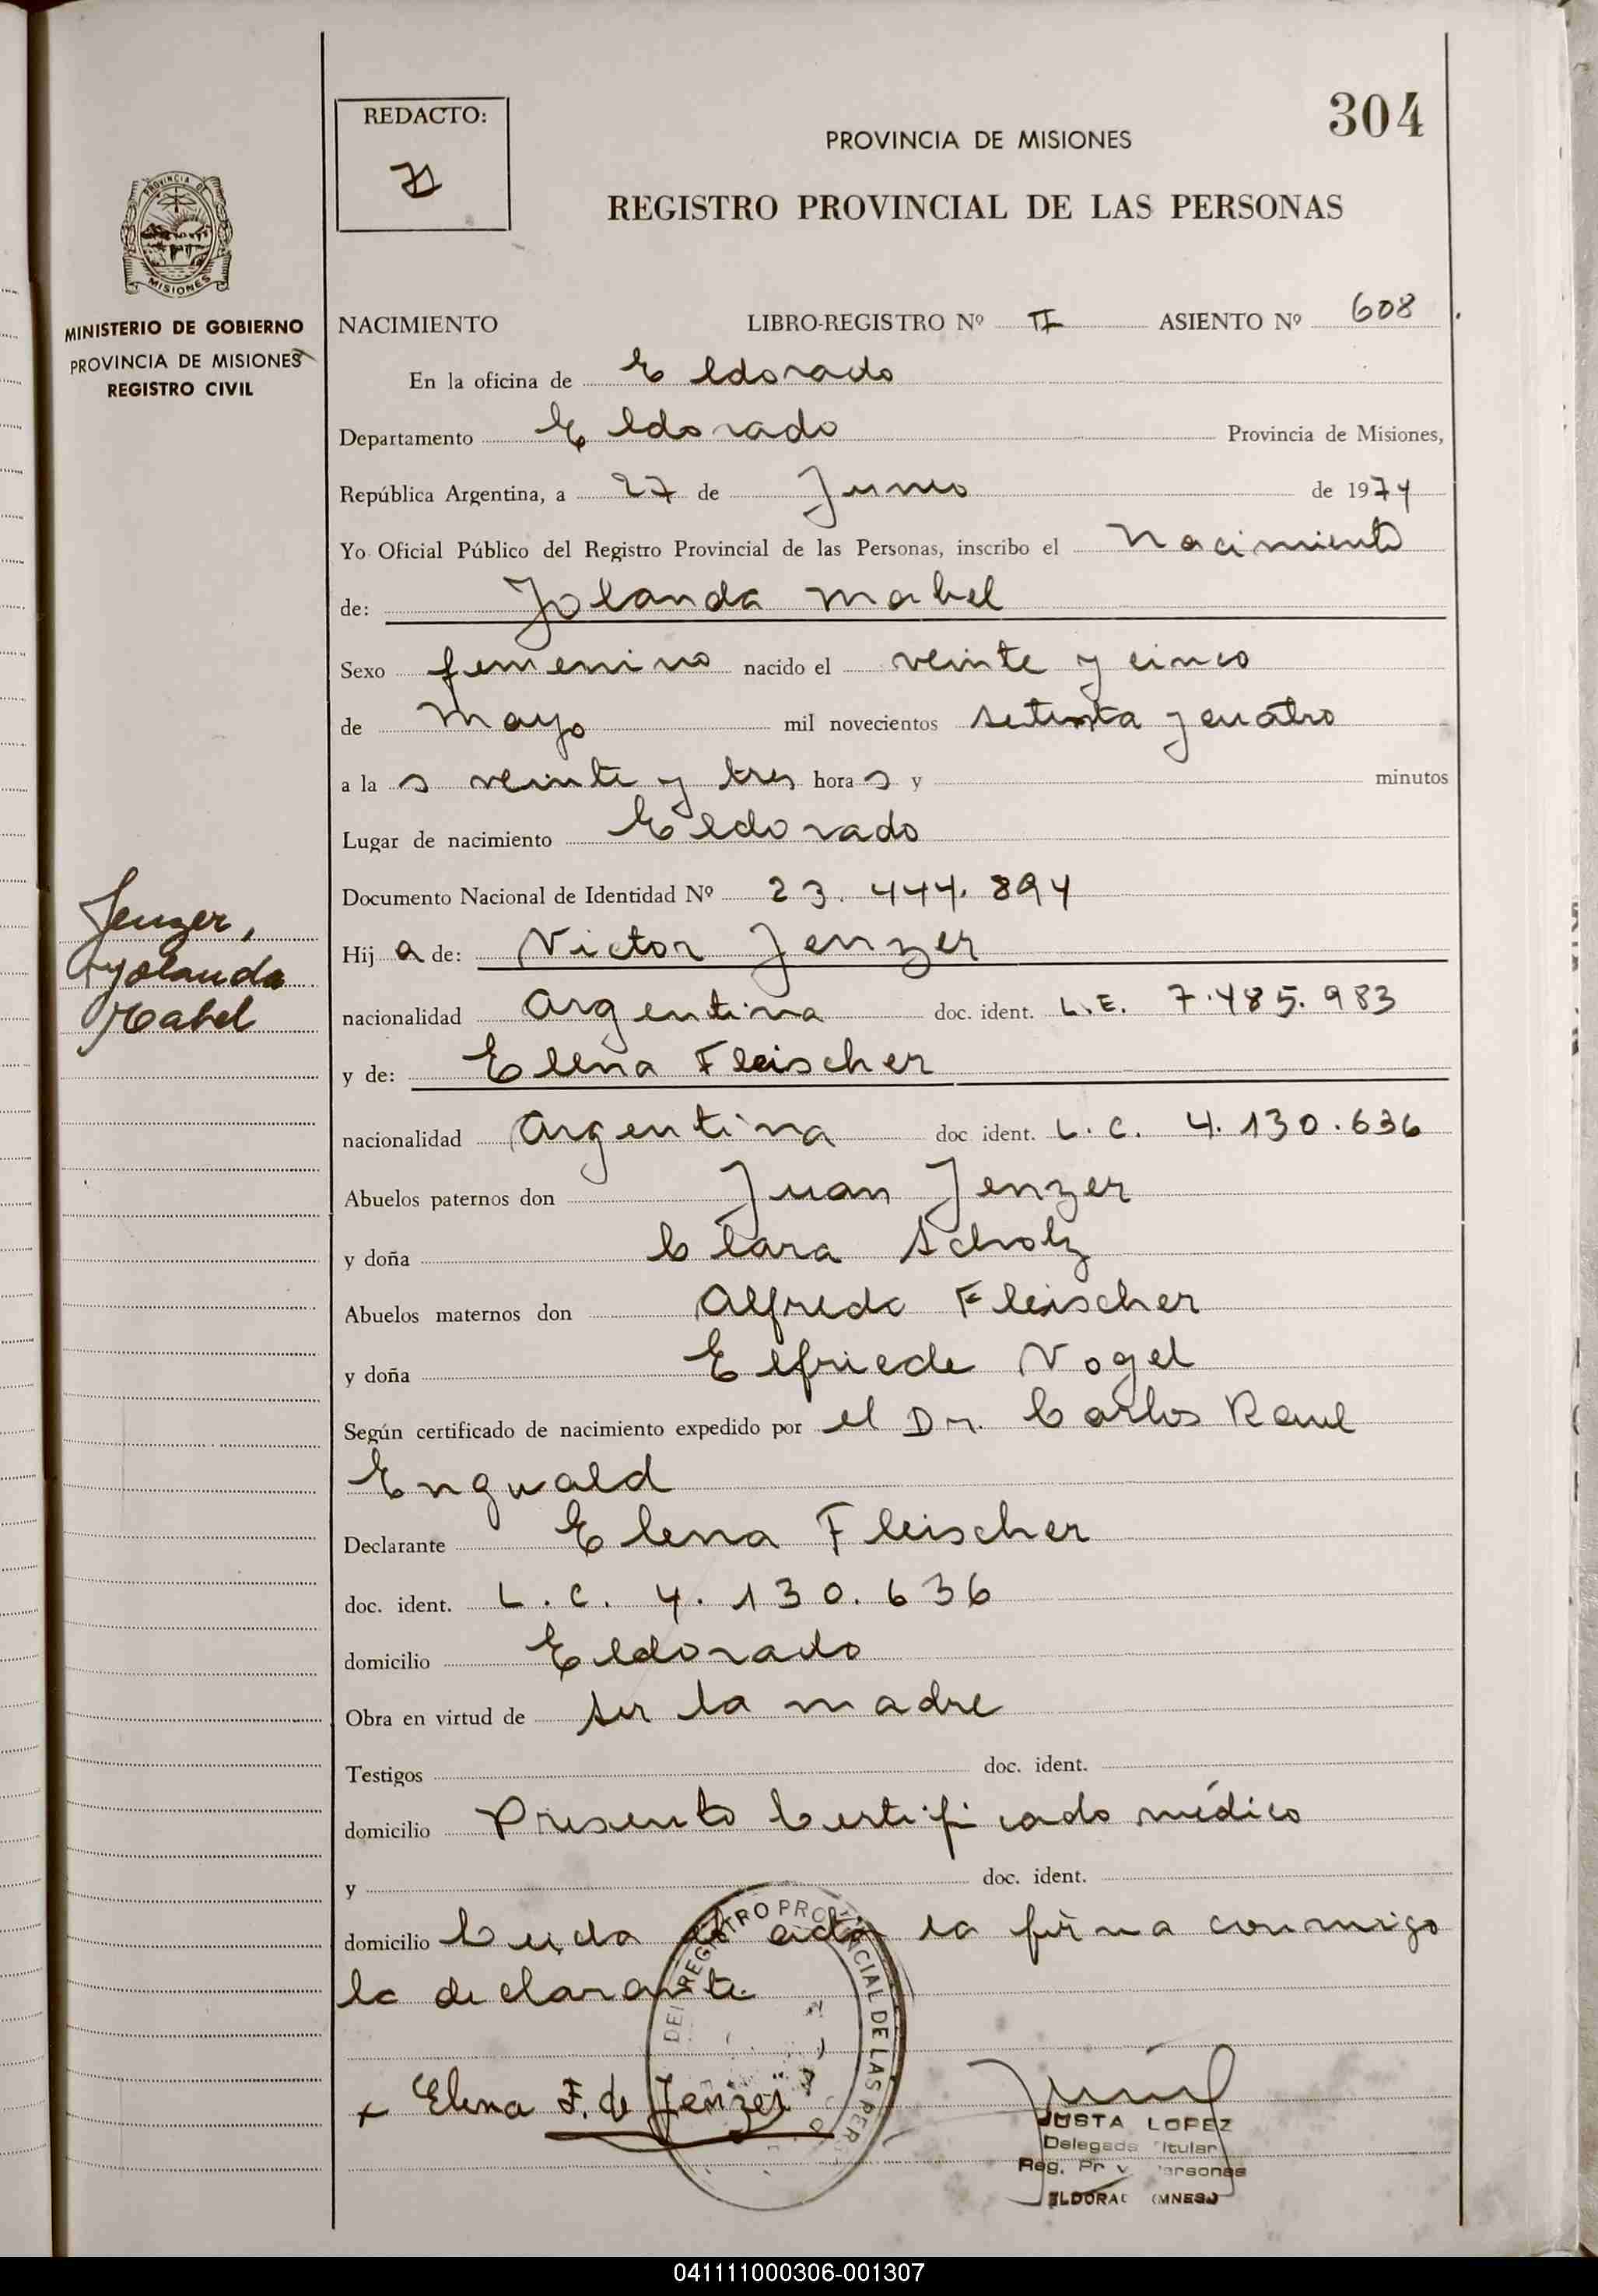 304
REDACTO:
PROVINCIA DE MISIONES
REGISTRO PROVINCIAL DE LAS PERSONAS
PROVINCIA DE
MISIONES
MINISTERIO DE GOBIERNO
PROVINCIA DE MISIONES
REGISTRO CIVIL
NACIMIENTO LIBRO-REGISTRO Nº II ASIENTO Nº 608
En la oficina de Eldorado
Departamento Eldorado Provincia de Misiones,
República Argentina, a 27 de Junio de 1974
Yo Oficial Público del Registro Provincial de las Personas, inscribo el Nacimiento
de: Yolanda Mabel
Sexo femenino nacido el veinte y cinco
de Mayo mil novecientos setenta y cuatro
a la s veinte y tres hora s y minutos
Lugar de nacimiento Eldorado
Documento Nacional de Identidad Nº 23.444.894
Jenzer,
Yolanda
Mabel
Hij a de: Victor Jenzer
nacionalidad Argentina doc. ident. L.E. 7.485.983
y de: Elena Fleischer
nacionalidad Argentina doc ident. L.C. 4.130.636
Abuelos paternos don Juan Jenzer
y doña Clara Scholz
Abuelos maternos don Alfredo Fleischer
y doña Elfriede Vogel
Según certificado de nacimiento expedido por el Dr. Carlos Raul
Engwald
Declarante Elena Fleischer
doc. ident. L.C. 4.130.636
domicilio Eldorado
Obra en virtud de ser la madre
Testigos doc. ident.
domicilio Presento Certificado médico
y doc. ident.
domicilio Leida el acta la firma conmigo
la declarante.
REGISTRO PROVINCIAL DE LAS PER
x Elena F. de Jenzer
JUSTA LOPEZ
Delegada Titular
Reg. Prov. Personas
ELDORADO (MNES.)
041111000306-001307